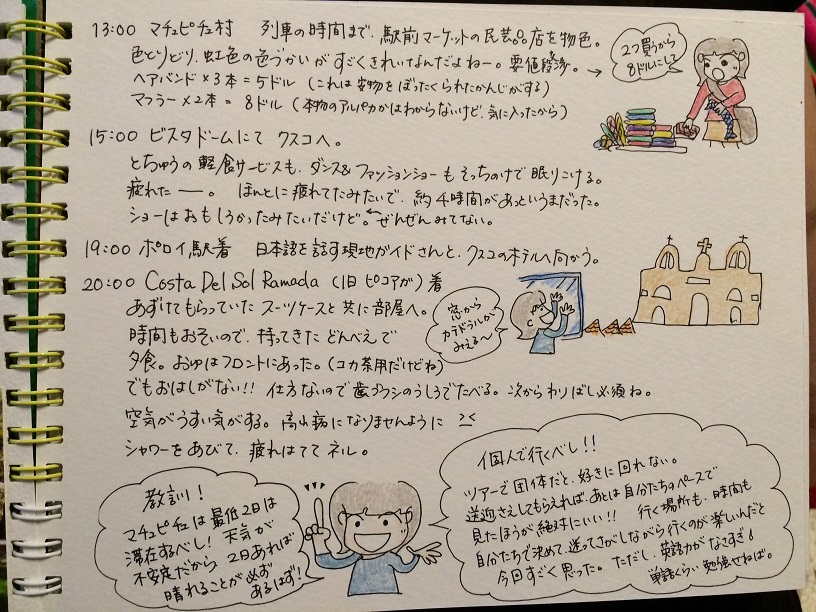 13:00 マチュピチュ村 列車の時間まで、駅前マーケットの民芸品店を物色。
色とりどり、虹色の色づかいがすごくきれいなんだよねー。要値段交渉。→
2つ買うから
8ドルにして
ヘアバンド×3本=5ドル (これは安物をぼったくられたかんじがする)
マフラー×2本=8ドル (本物のアルパカかはわからないけど、気に入ったから)
15:00 ビスタドームにて クスコへ。
とちゅうの軽食サービスも、ダンス&ファッションショーもそっちのけで眠りこける。
疲れたー。 ほんとに疲れてたみたいで、約4時間があっというまだった。
ショーはおもしろかったみたいだけど。←ぜんぜんみてない。
19:00 ポロイ駅着 日本語を話す現地ガイドさんと、クスコのホテルへ向かう。
20:00 Costa Del Sol Ramada (旧 ピコアガ) 着
あずけてもらっていた スーツケースと共に部屋へ。
時間もおそいので、持ってきた どんべえで
夕食。おゆはフロントにあった。(コカ茶用だけどね)
窓から
カテドラルが
みえる〜
でもおはしがない!! 仕方ないので歯ブラシのうしろでたべる。次からわりばし必須ね。
空気がうすい気がする。高山病になりませんように
シャワーをあびて、疲れはててネル。
教訓!
マチュピチュは最低2日は
滞在するべし! 天気が
不安定だから 2日あれば
晴れることが必ず
あるはず!
個人で行くべし!!
ツアーで団体だと、好きに回れない。
送迎さえしてもらえれば、あとは自分たちのペースで
見たほうが絶対にいい!! 行く場所も、時間も
自分たちで決めて、迷ってさがしながら行くのが楽しいんだと
今回すごく思った。ただし、英語力がなさすぎ
単語くらい勉強せねば。